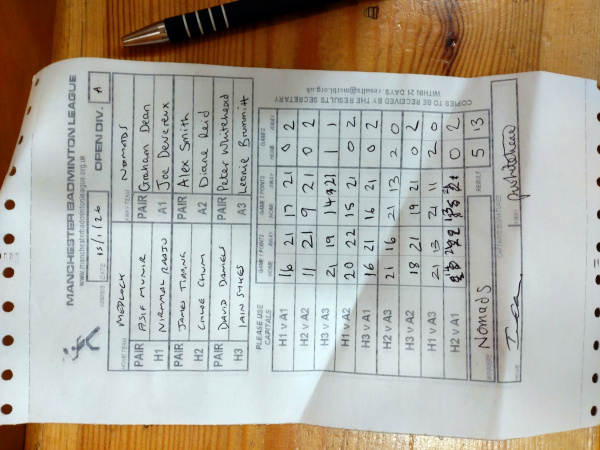 MANCHESTER BADMINTON LEAGUE
www.manchesterbadmintonleague.org.uk
DATE 15/1/26 OPEN DIV. A
HOME TEAM MEDLOCK AWAY TEAM NOMADS
PAIR ASIF MUNIR PAIR Graham Dean
H1 NIRMAL RAAJU A1 Joe Devereux
PAIR JAMES TIPPING PAIR Alex Smith
H2 CHLOE CHUM A2 Diane Reid
PAIR DAVID DANIELS PAIR Peter Whitehead
H3 IAIN SYKES A3 Leonie Brummitt
PLEASE USE CAPITALS
COPIES TO BE RECEIVED BY THE RESULTS SECRETARY
WITHIN 21 DAYS. results@mcrbl.org.uk
GAME 1 POINTS GAME 2 POINTS GAMES
HOME AWAY HOME AWAY HOME AWAY
H1 V A1 16 21 17 21 0 2
H2 V A2 11 21 9 21 0 2
H3 V A3 21 19 14 21 1 1
H1 V A2 20 22 15 21 0 2
H3 V A1 16 21 16 21 0 2
H2 V A3 21 16 21 13 2 0
H3 V A2 18 21 19 21 0 2
H1 V A3 21 13 21 11 2 0
H2 V A1 0 2
Nomads RESULT 5 13
PWhitehead